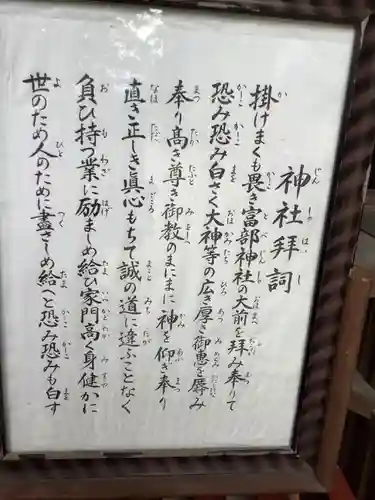 神社拝詞
掛けまくも畏き富部神社の大前を拝み奉りて
恐み恐み白さく大神等の広き厚き御恵を辱み
奉り高き尊き御教のまにまに神を仰き奉り
直き正しきと眞心もちて誠の道に違ふことなく
負ひ持つ業に励ましめ給ひ家門高く身健かに
世のため人のために盡さしめ給へと恐み恐みも白す